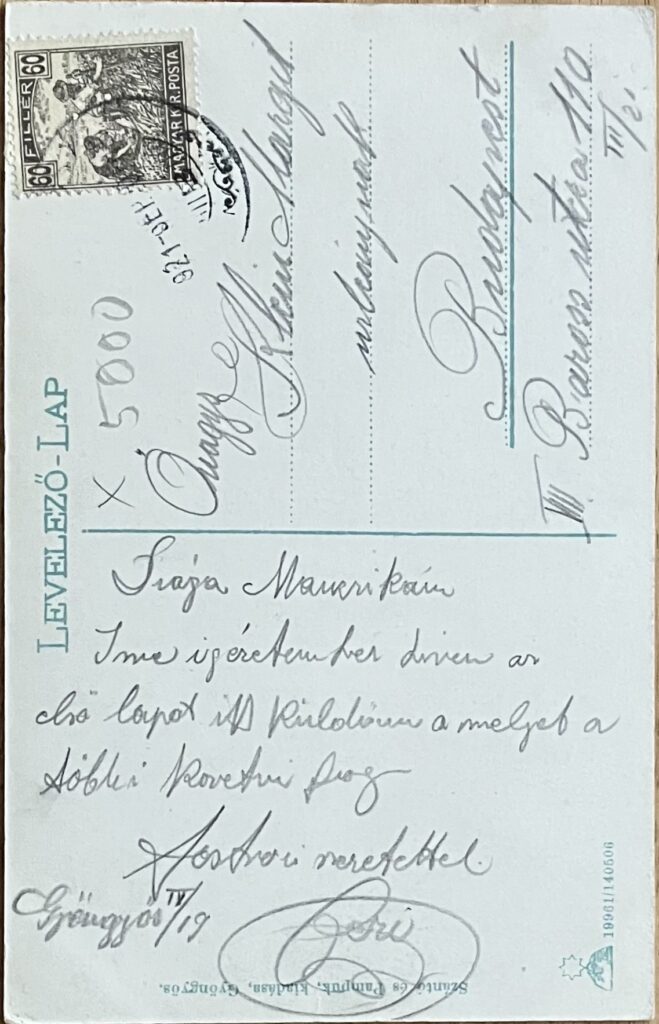 LEVELEZŐ-LAP
60 FILLÉR 60
MAGYAR KIR. POSTA
921
X 5000
Klein Margit
Budapest
VIII. Baross utcza 110
III/21
Drága Manczikám
Ime igéretemhez hiven az
első lapot itt küldöm a melyet a
többi követni fog
Testvéri szeretettel
Gyöngyös IV/19
Szántó és Pampuk, kiadása, Gyöngyös.
19961/140506